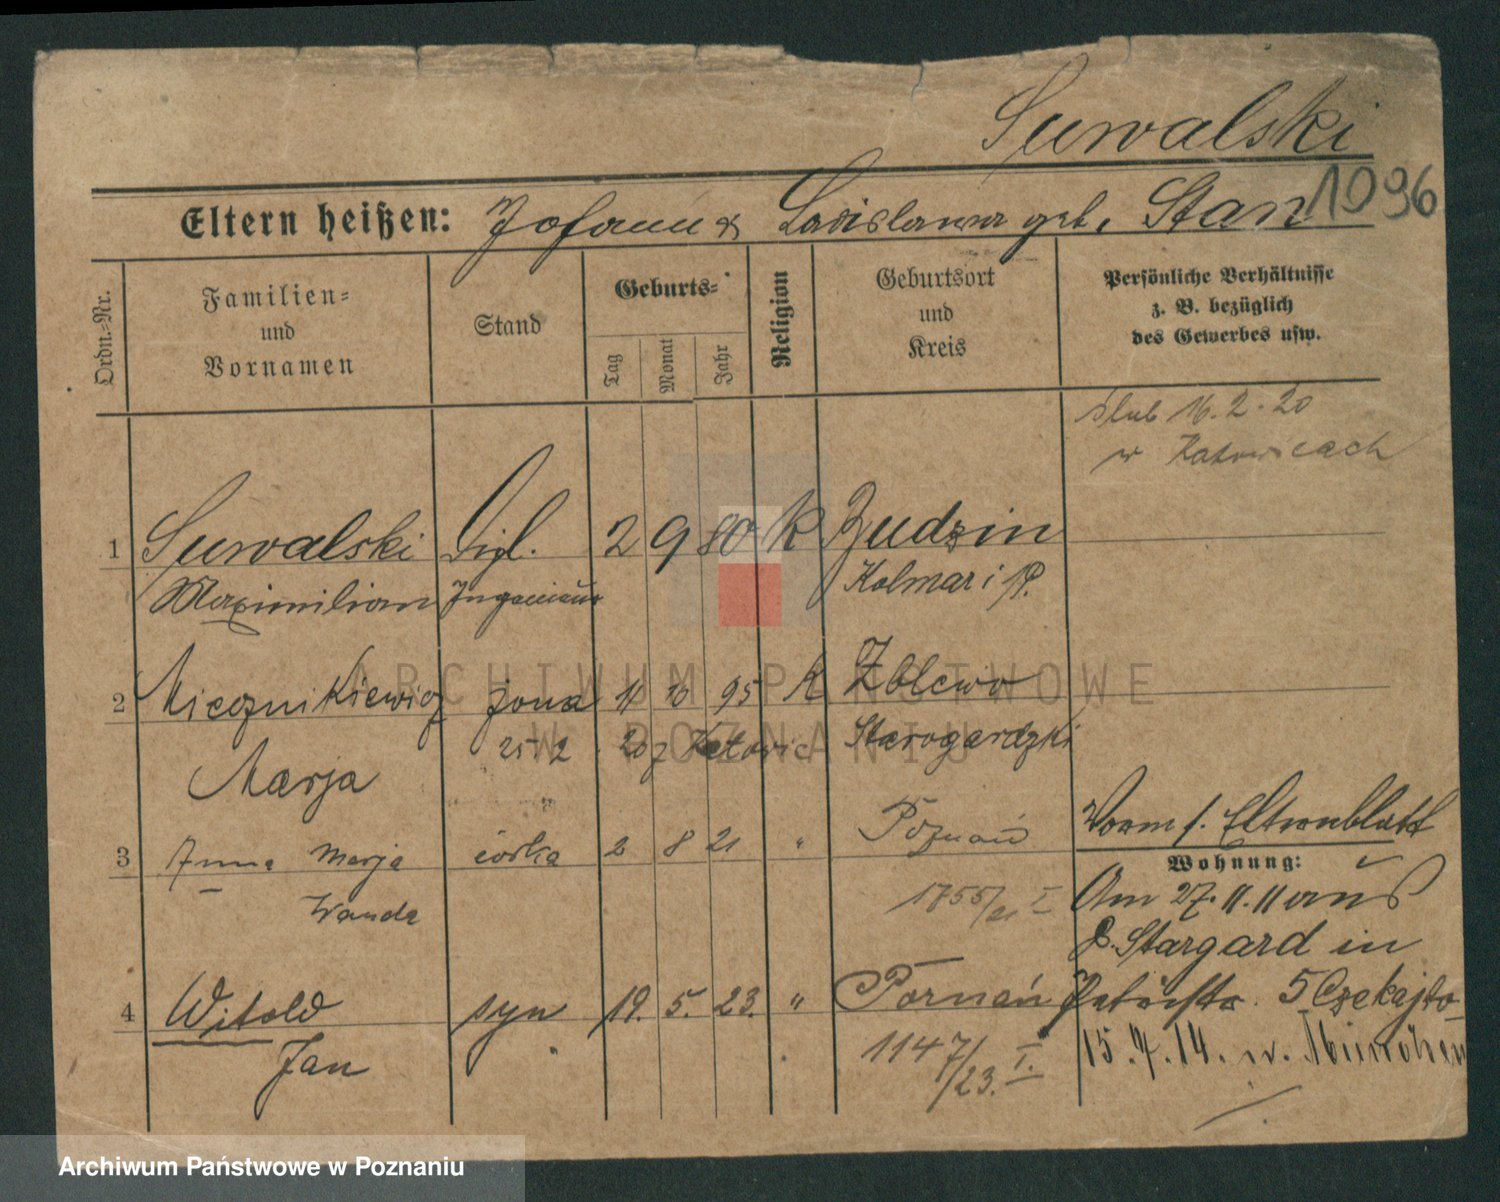 Suwalski
1096
Eltern heißen: Johann & Ladislawa geb. Stan
Ordn.-Nr.
Familien=
und
Vornamen
Stand
Geburts=
Tag
Monat
Jahr
Religion
Geburtsort
und
Kreis
Persönliche Verhältnisse
z. B. bezüglich
des Gewerbes usw.
ślub 16.2.20
w Katowicach
1 Suwalski Dipl. 2 9 80 K Budzin
Maximilian Ingenieur Kolmar i P.
2 Miecznikiewicz żona 11 10 95 K Zblewo
25 2 20 z Katowic Starogardzki
Marja
3 Anna Marja córka 2 8 21 " Poznań
Wanda 1755/21 I
Vorm s. Elternblatt
Wohnung:
Am 27.11.11 aus
P. Stargard in
4 Witold syn 19. 5. 23. " Poznań
Jan 1147/23. I.
5 Czekajto
15.7.14. n. München
ARCHIWUM PAŃSTWOWE
W POZNANIU
Archiwum Państwowe w Poznaniu